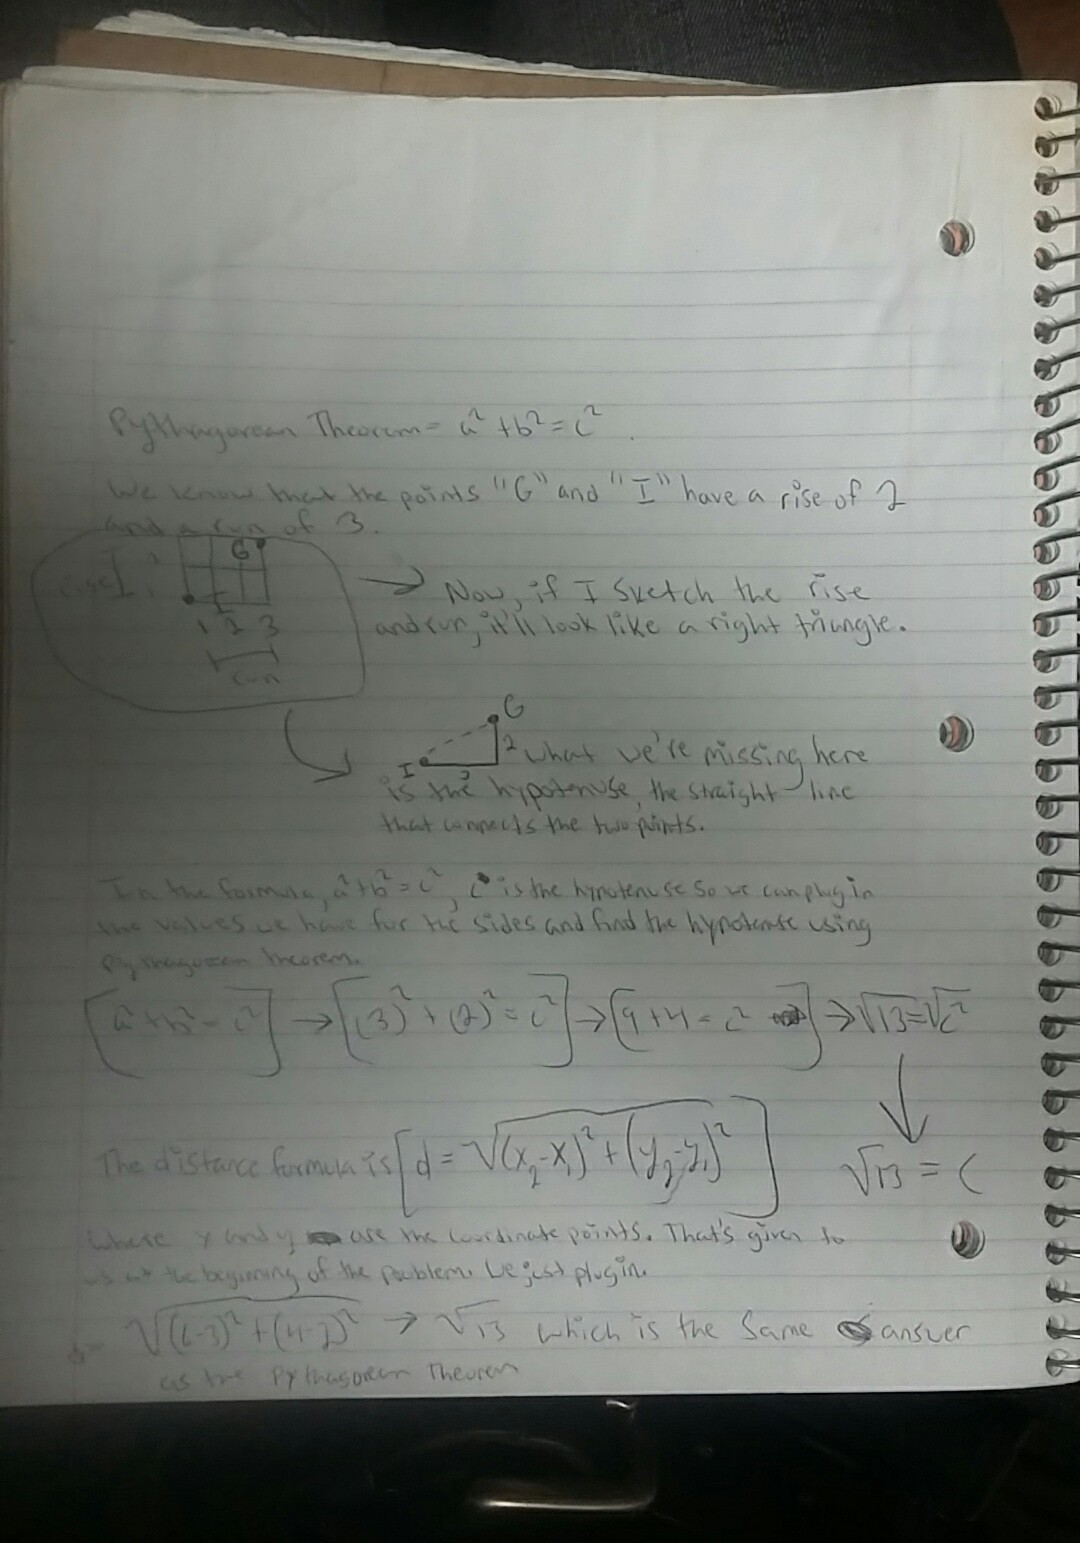 Pythagorean Theorem = a² + b² = c².
We know that the points "G" and "I" have a rise of 2
and a run of 3.
G
I
1 2 3
run
→ Now, if I sketch the rise
and run, it'll look like a right triangle.
G
2 What we're missing here
I 3
is the hypotenuse, the straight line
that connects the two points.
In the formula, a² + b² = c², c is the hypotenuse so we can plug in
the values we have for the sides and find the hypotenuse using
pythagorean theorem.
[a² + b² = c²] → [(3)² + (2)² = c²] → [9 + 4 = c²] → √13 = √c²
√13 = c
The distance formula is [d = √(x₂-x₁)² + (y₂-y₁)²]
Where x and y are the coordinate points. That's given to
us at the beginning of the problem. We just plug in.
d = √(6-3)² + (4-2)² → √13 which is the same answer
as the Pythagorean Theorem